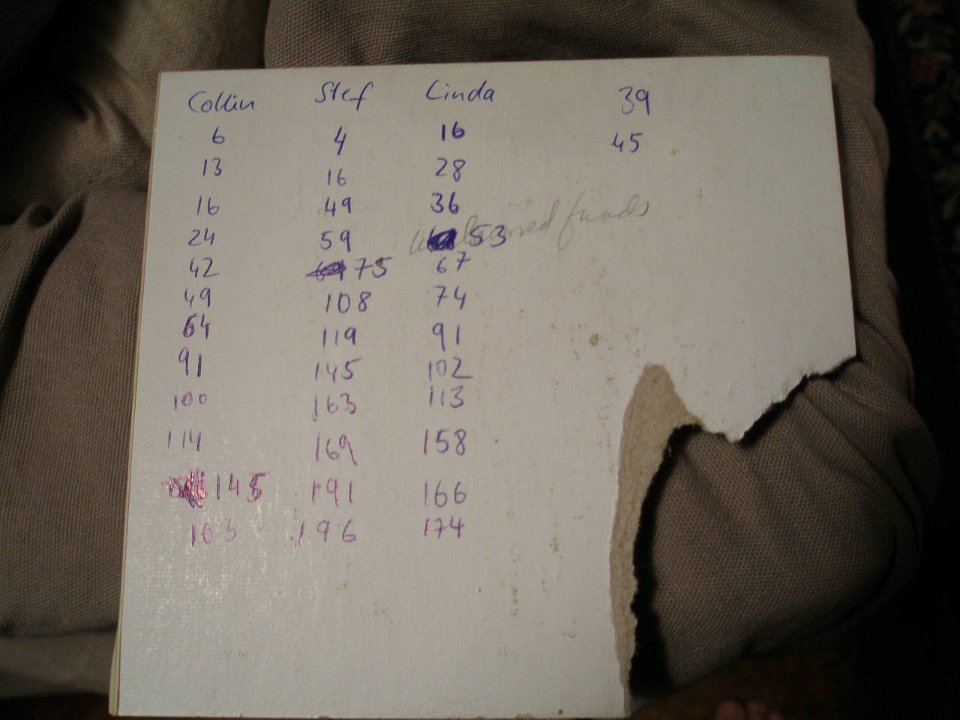 Collin Stef Linda 39
6 4 16 45
13 16 28
16 49 36
24 59 53 funds
42 75 67
49 108 74
64 119 91
91 145 102
100 163 113
114 169 158
145 191 166
163 196 174